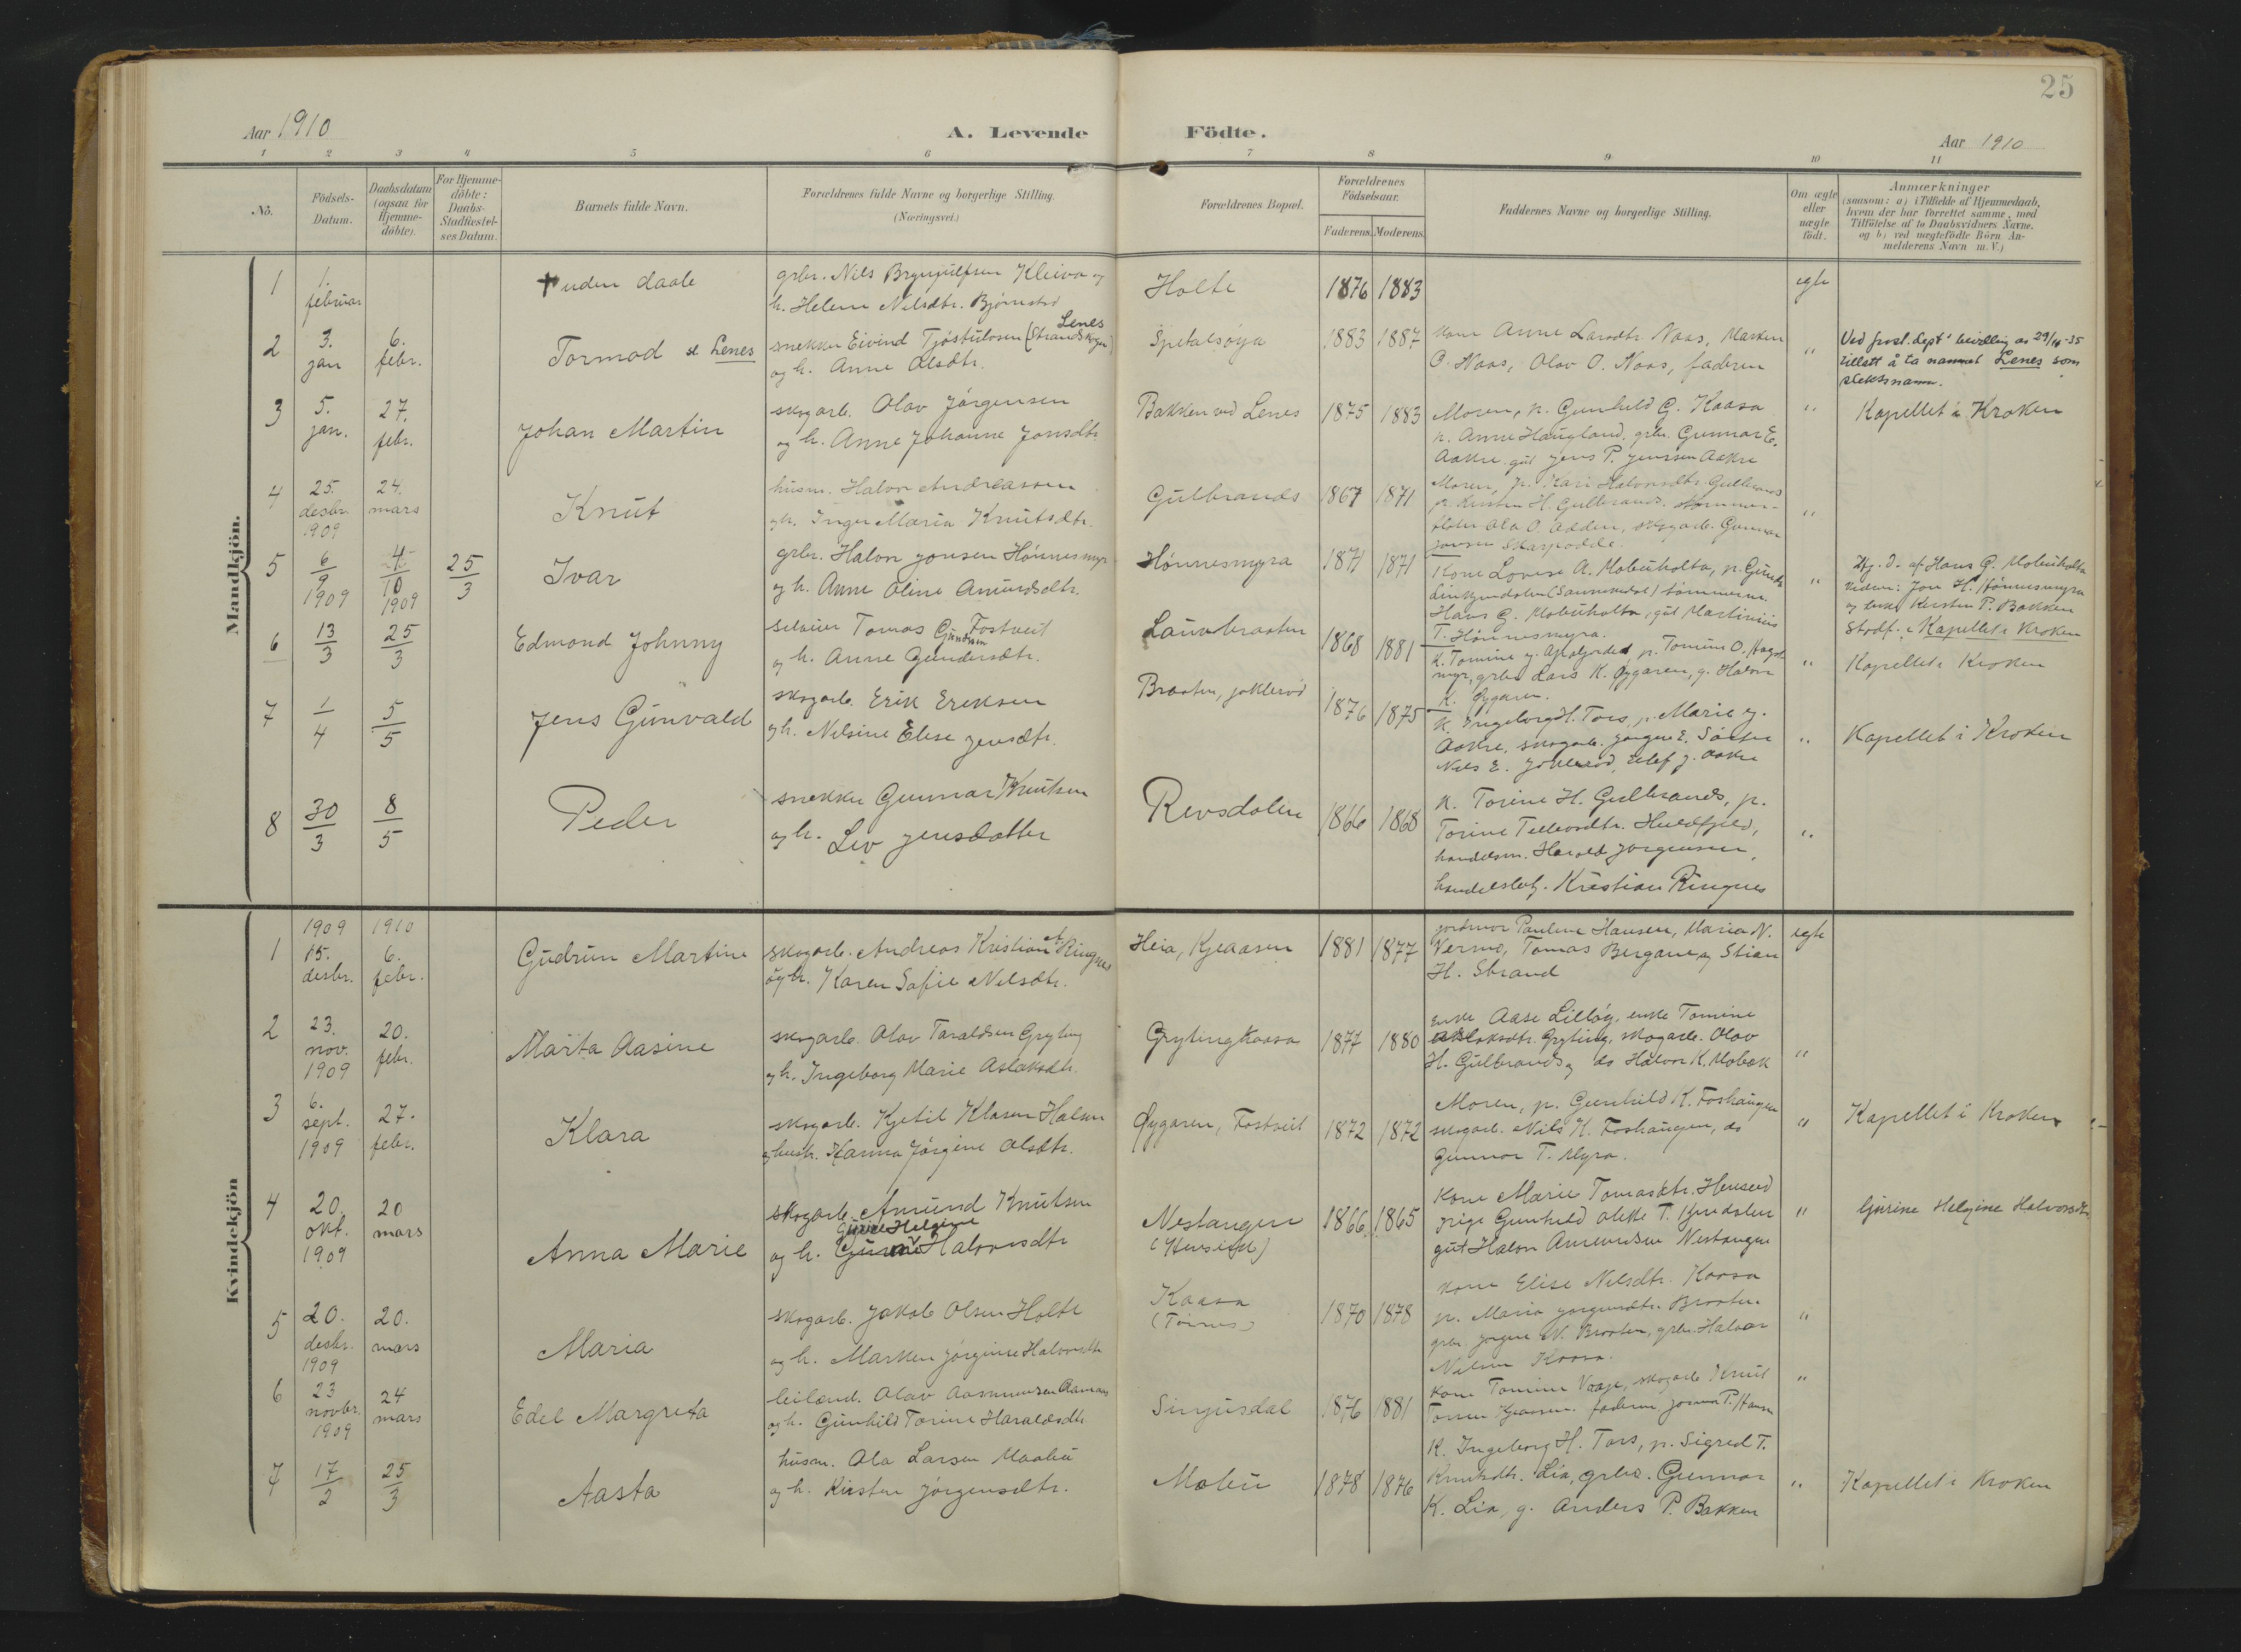 25
Aar 1910
A. Levende Födte.
Aar 1910
1 2 3 4 5 6 7 8 9 10 11
No.
Födsels-
Datum.
Daabsdatum
(ogsaa for
Hjemme-
döbte).
For Hjemme-
döbte:
Daabs-
Stadfæstel-
ses Datum.
Barnets fulde Navn.
Forældrenes fulde Navne og borgerlige Stilling.
(Næringsvei.)
Forældrenes Bopæl.
Forældrenes
Födselsaar.
Faderens. Moderens.
Faddernes Navne og borgerlige Stilling.
Om ægte
eller
uægte
födt.
Anmærkninger
(saasom: a) i Tilfælde af Hjemmedaab,
hvem der har forrettet samme, med
Tilföielse af to Daabsvidners Navne.
og b) ved uægtefödte Börn An-
melderens Navn m. V.)
Mandkjön.
1
1.
februar
† uden daab
grbr. Nils Brynjulfsen Kleiva og
h. Helene Nilsdtr. Bjørnstad
Holte
1876 1883
egte
2
3.
jan
6.
febr.
Tormod sl. Lenes
Lenes
snekker Eivind Tjöstulvsen (Strandskogen)
og h. Anne Olsdtr.
Spitalsöya
1883 1887
kone Anne Larsdtr. Naas, Marken
O. Naas, Olav O. Naas, faderen
"
Ved just. dept' bevilling av 29/10-35
tillatt å ta namnet Lenes som
slektsnamn.
3
5.
jan.
27.
febr.
Johan Martin
skogarb. Olav Jörgensen
og h. Anne Johanne Jonsdtr.
Bakken ved Lenes
1875 1883
Moren, p. Gunhild G. Kaasa
p. Anne Haugland, grbr. Gunnar E.
Aakre, gut Jens P. Jenssen Aakre
"
Kapellet i Kroken
4
25.
desbr.
1909
24.
mars
Knut
husm. Halvor Andreassen
og h. Inger Maria Knutsdtr.
Gulbrands
1867 1871
Moren, p. Kari Halvorsdtr. Gulbrands
p. Kirsten H. Gulbrands.
Ola O. Odden, skogarb. Gunnar
Jonsen Skarpodde.
"
5
6/9
1909
4/10
1909
25/3
Ivar
grbr. Halvor Jonsen Hönnesmyr
og h. Anne Oline Amundsdtr.
Hönnesmyra
1871 1871
Kone Lovise A. Mobuholta, p. Gunda
(Sannikedal) tömmerm.
Hans G. Mobuholta, gut Martinius
T. Hönnesmyra.
"
Hj. d. af Hans G. Mobuholta
Vidner: Jon H. Hönnesmyra
og enke Kirsten P. Bakken
Stadf. i Kapellet i Kroken
6
13/3
25/3
Edmond Johnny
Tomas Gundersen Fostveit
og h. Anne Gundersdtr.
Lauvbraaten
1868 1881
K. Tomine g. Apalgarde, p. Tomine O. Hagst
myr, grbr. Lars K. Øygaren, g. Halvor
K. Øygaren.
"
Kapellet i Kroken
7
1/4
5/5
Jens Gunvald
skogarb. Erik Eriksen
og h. Nilsine Elise Jensdtr.
Braaten, Joklerød
1876 1875
K. Ingeborg H. Tors, p. Marie g.
Aakre, skogarb. Jörgen E.
Nils E. Joklerød, Elef J. Aakre
"
Kapellet i Kroken
8
30/3
8/5
Peder
snekker Gunnar Knutsen
og h. Liv Jensdatter
Revsdalen
1866 1868
K. Torine H. Gulbrands, p.
Torine Tellevsdtr. Huldfjeld,
handelsm. Harald Jörgensen,
handelsbetj. Kristian Ringnes
"
Kvindekjön
1
1909
15.
desbr.
1910
6.
febr.
Gudrun Martine
skogarb. Andreas Kristian A. Ringnes
og h. Karen Safie Nilsdtr.
Heia, Kjeaasen
1881 1877
jordmor Pauline Hansen, Maria N.
Vermo, Tomas Bergane og Stian
H. Strand
egte
2
23.
nov.
1909
20.
febr.
Märta Aasine
skogarb. Olav Taraldsen Gryting
og h. Ingeborg Marie Aslaksdtr.
Grytingkaasa
1877 1880
Enke Aase Lilløy, enke Tomine
Aslaksdtr. Gryting, skogarb. Olav
H. Gulbrands og do Halvor K. Mobæk
"
3
6.
sept.
1909
27.
febr.
Klara
skogarb. Kjetil Klasen Halsen
og hustr. Hanna Jörgine Olsdtr.
Øygaren, Fostveit
1872 1872
Moren, p. Gunhild K. Foshaugen
skogarb. Nils K. Foshaugen, do
Gunnar T. Myra.
"
Kapellet i Kroken
4
20.
okt.
1909
20
mars
Anna Marie
skogarb. Amund Knutsen
Gjurine Helgine
og h. Halvorsdtr
Nestangen
(Henseid)
1866 1865
Kone Marie Tomasdtr. Henseid
pige Gunhild Olette T. Kjendalen
gut Halvor Amundsen Nestangen
"
Gjurine Helgine Halvorsdtr.
5
20.
desbr.
1909
20.
mars
Maria
skogarb. Jakob Olsen Holte
og h. Marken Jörgine Halvorsdtr
Kaasa
(Törnes)
1870 1878
kone Elise Nilsdtr. Kaasa
p. Maria Jörgensdtr. Braaten
grbr. Jörgen N. Braaten, grbr. Halvor
Nilsen Kaasa.
"
6
23
novbr.
1909
24
mars
Edel Margreta
leilænd. Olav Aasmundsen Aamaas
og h. Gunhild Torine Haraldsdtr
Sinjusdal
1876 1881
Kone Tomine Vraje, skogarb Knut
Tomas Kjeaasen. faderen, jordmor P. Hansen
"
7
17/2
25/3
Aasta
husm. Ola Larsen Maabu
og h. Kirsten Jörgensdtr.
Mobu
1878 1876
K. Ingeborg H. Tors, p. Sigred T.
Knutsdtr. Lia, grbr. Gunnar
K. Lia, g. Anders P. Bakken
"
Kapellet i Kroken